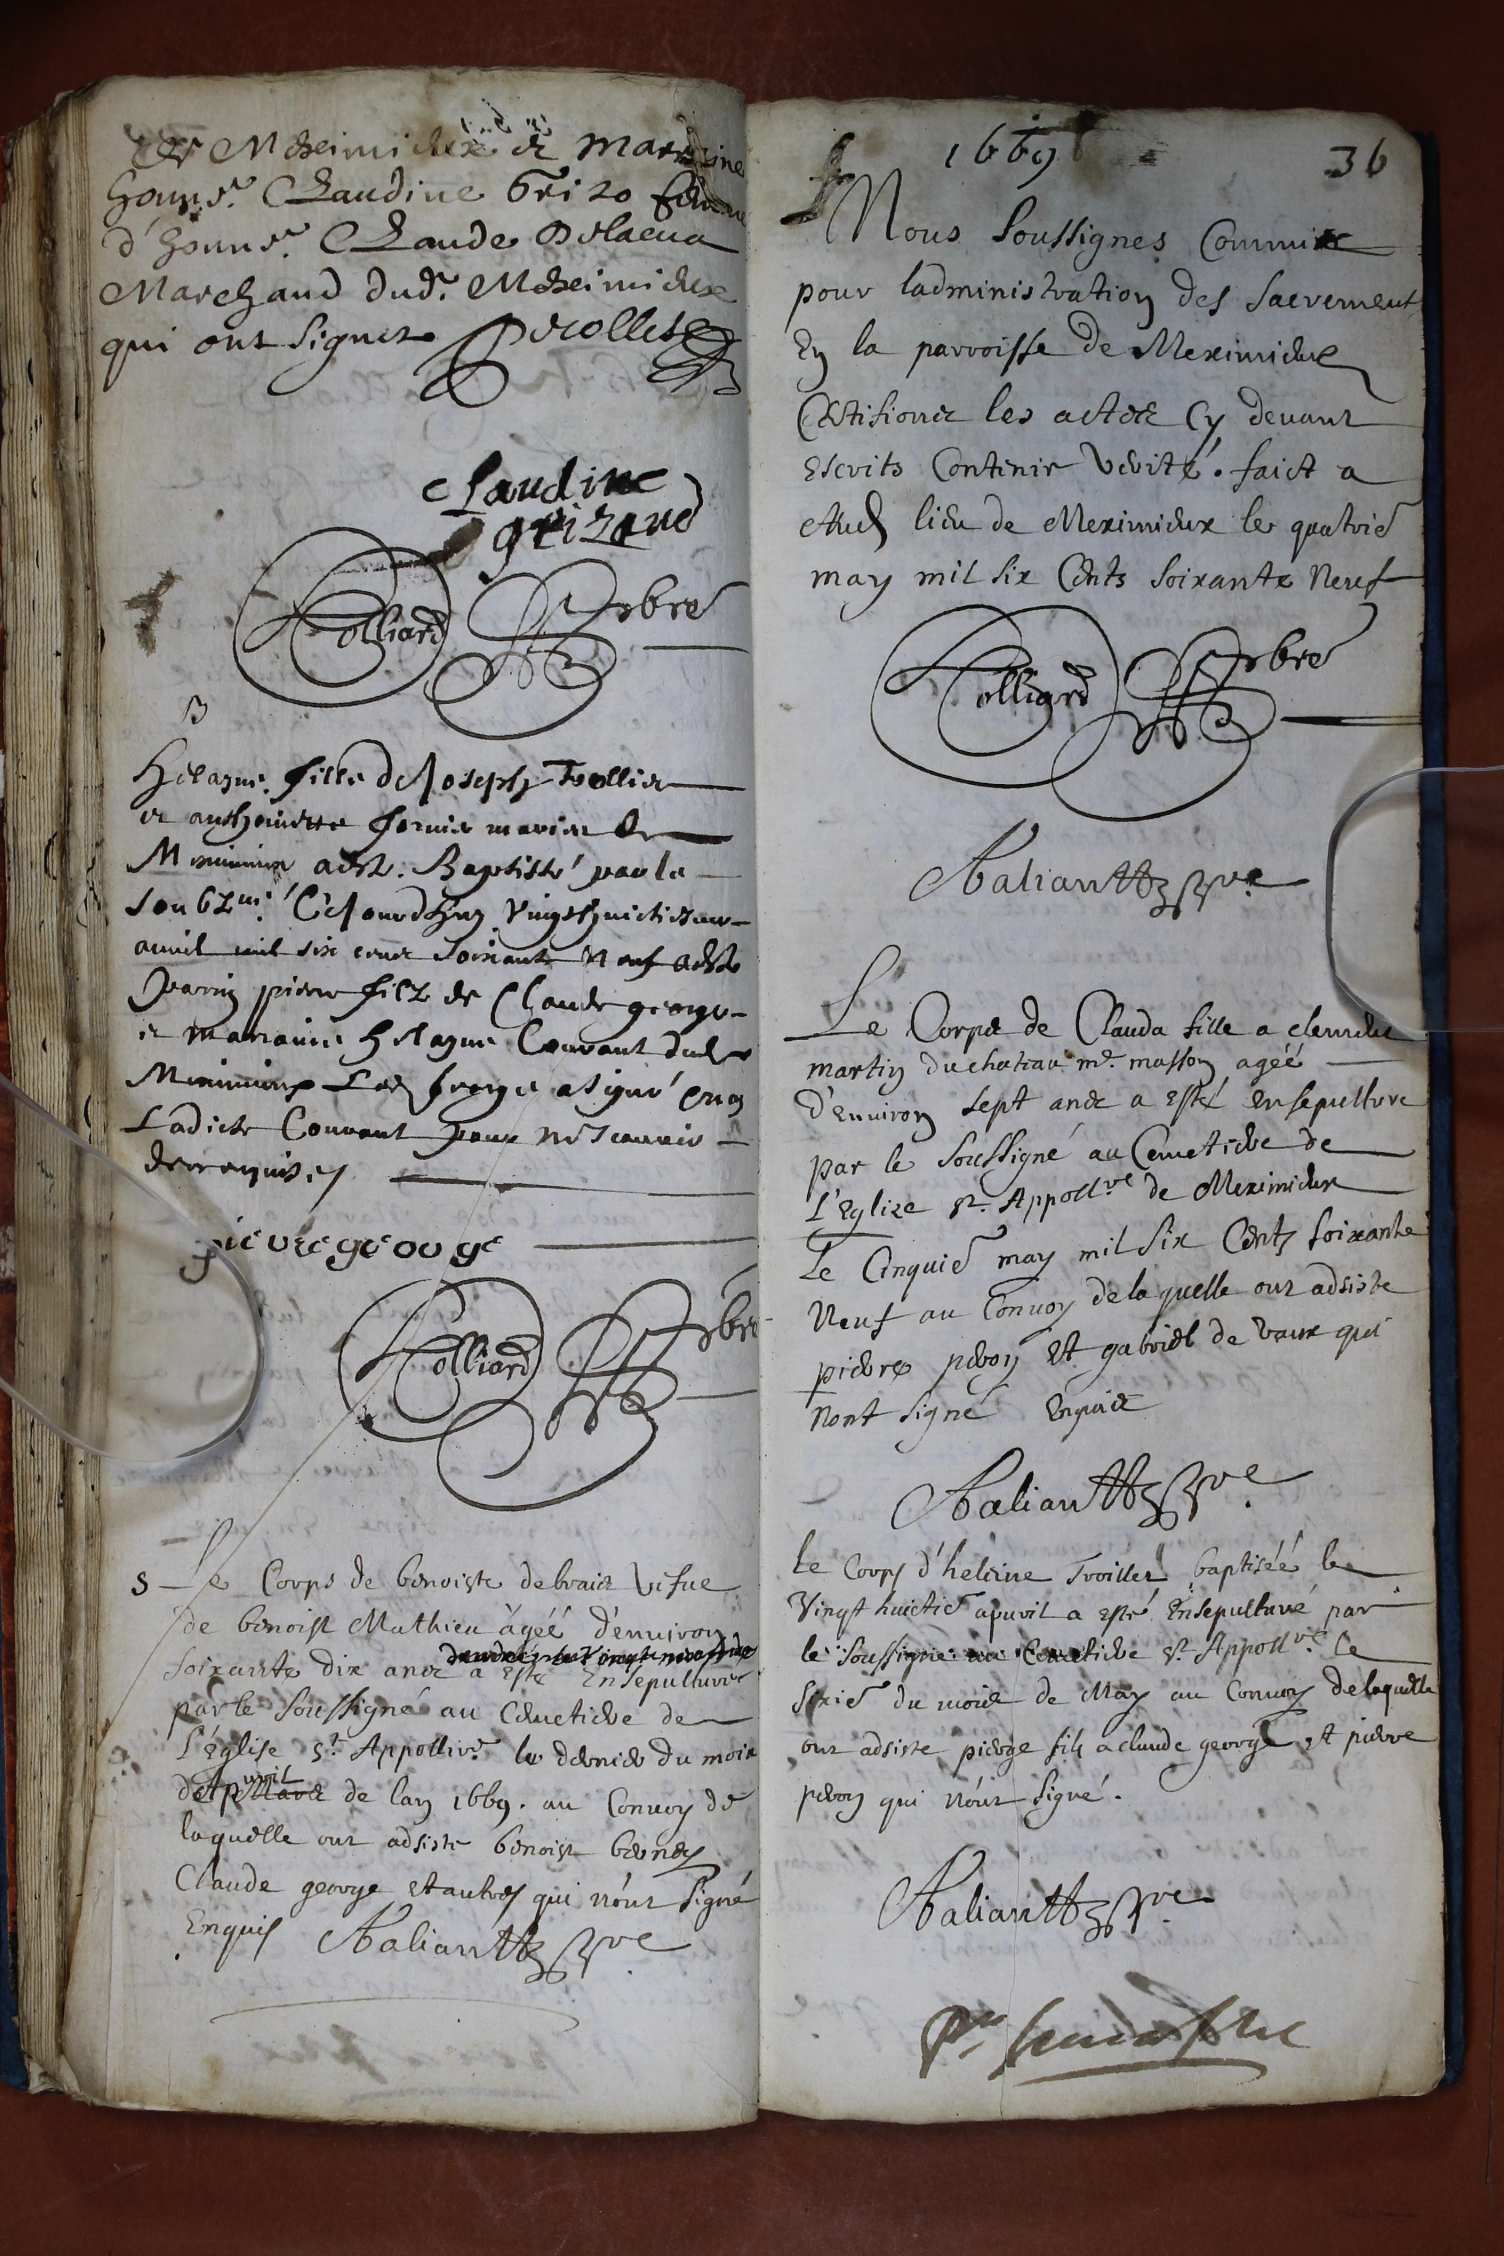 de Meximieux et marrine
honne. Claudine Grizo femme
d'honne. Claude Delacua
Marchand dud. Meximieux
qui ont signez Perollet
Claudine
grizaud
Folliard pbre
B
helayne fille de Joseph Trollier
et anthoinette fornier mariez de
Meximieux a este Baptisée par le
soubzné Cejourdhuy vingt huictiesme
auvril mil six cents soixante neuf a esté
parrin pierre filz de Claude george
et marraine helayne Couvant dud
Meximieux Led george a signé non
Ladicte Couvant pour ne scavoir
de ce enquise
pierre george
Folliard pbre
S Le Corps de benoiste debraiz vefue
de benoist Mathieu âgéé d'environ
soixante dix ans a esté Ensepulturee
par le soussigné au Cemetiere de
L'église St. Appollire. le dernier du mois
d'Apuvril de lan 1669. au Convoy de
laquelle ont adsisté benoist berney
Claude george et autres qui n'ont signé
Enquis Valiantt pbre
1669 36
Nous soussignes Commis
pour ladministration des sacrement
En la parroisse de Meximieux
Certifions les actes Cy devant
escrits Contenir verité. faict a
Aud lieu de Meximieux le quatrie
may mil six Cents soixante neuf
Folliard pbre
Valiantt pbre
Le Corps de Clauda fille a
martin du chateau me. masson agéé
d'Environ sept ans a esté ensepulture
par le soussigné au Cemetiere de
L'Eglize St. Appollre de Meximieux
Le Cinquie may mil six Cents soixante
neuf au Convoy de laquelle ont adsiste
pierre peron et gabriel de vaux qui
nont signé Enquis
Valiantt pbre
le Corps d'helaine Troillet baptisée le
Vingt huictie apuvril a esté Ensepulturé par
le soussigné au Cemetiere St. Appollre. le
sixie du mois de May au Convoy de laquelle
ont adsiste pierre fils a claude george et pierre
peron qui n'ont signé.
Valiantt pbre